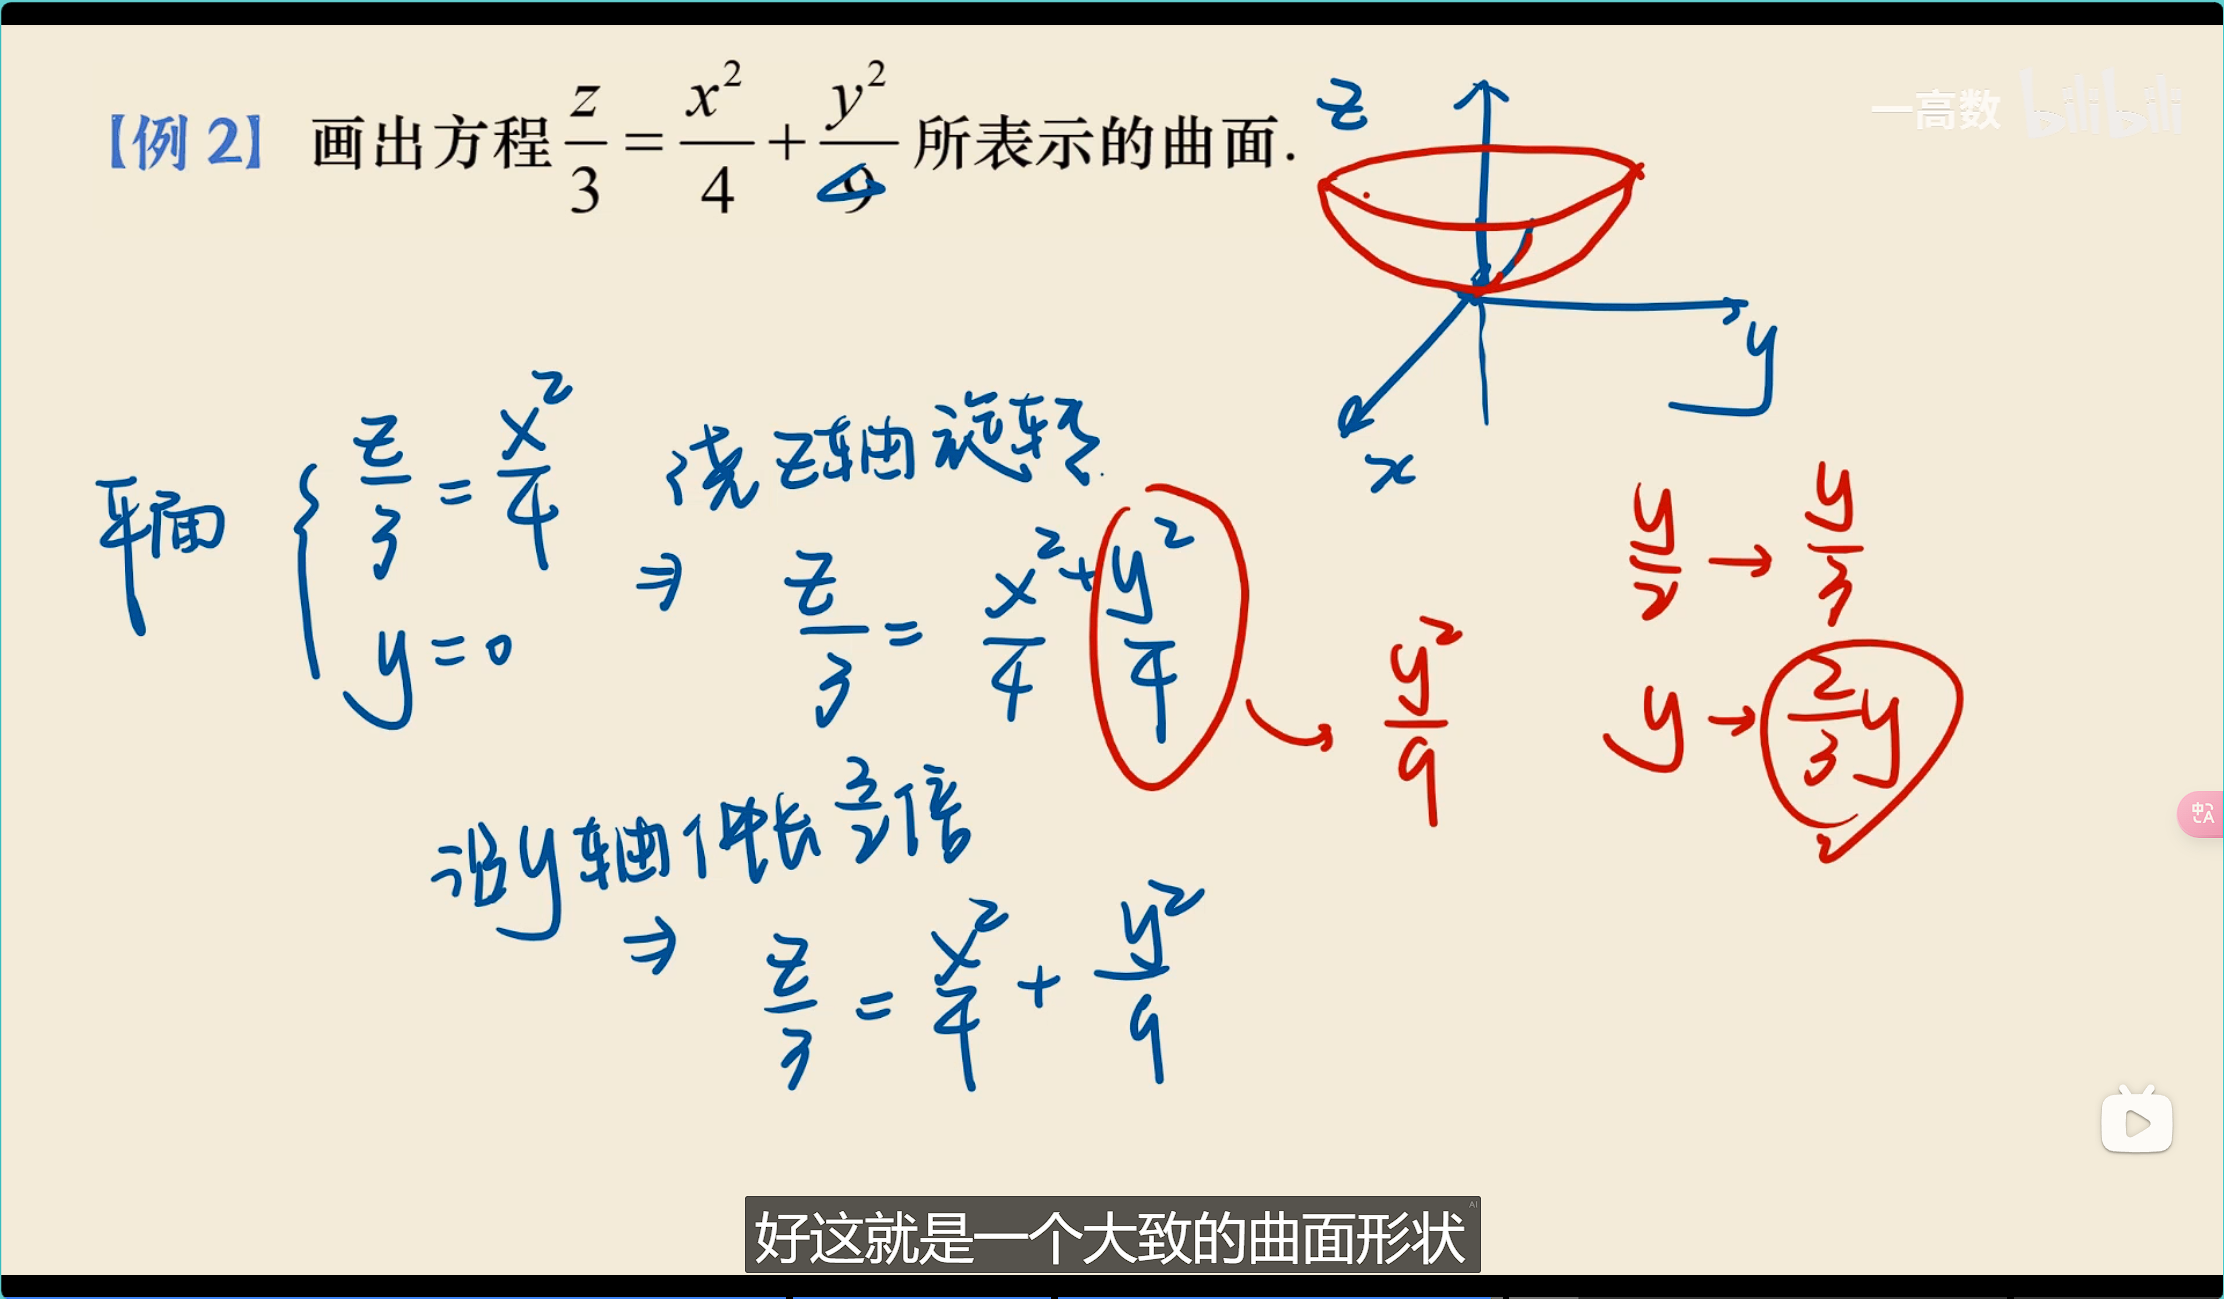 【例 2】 画出方程 z/3 = x²/4 + y²/9 所表示的曲面.
一高数 bilibili
z
y
x
平面 { z/3 = x²/4
y=0
绕z轴旋转
⇒ z/3 = x²/4 + y²/4
→ y²/9
y/2 → y/3
y → 2/3 y
沿y轴伸长 3/2 倍
⇒ z/3 = x²/4 + y²/9
好这就是一个大致的曲面形状
AI